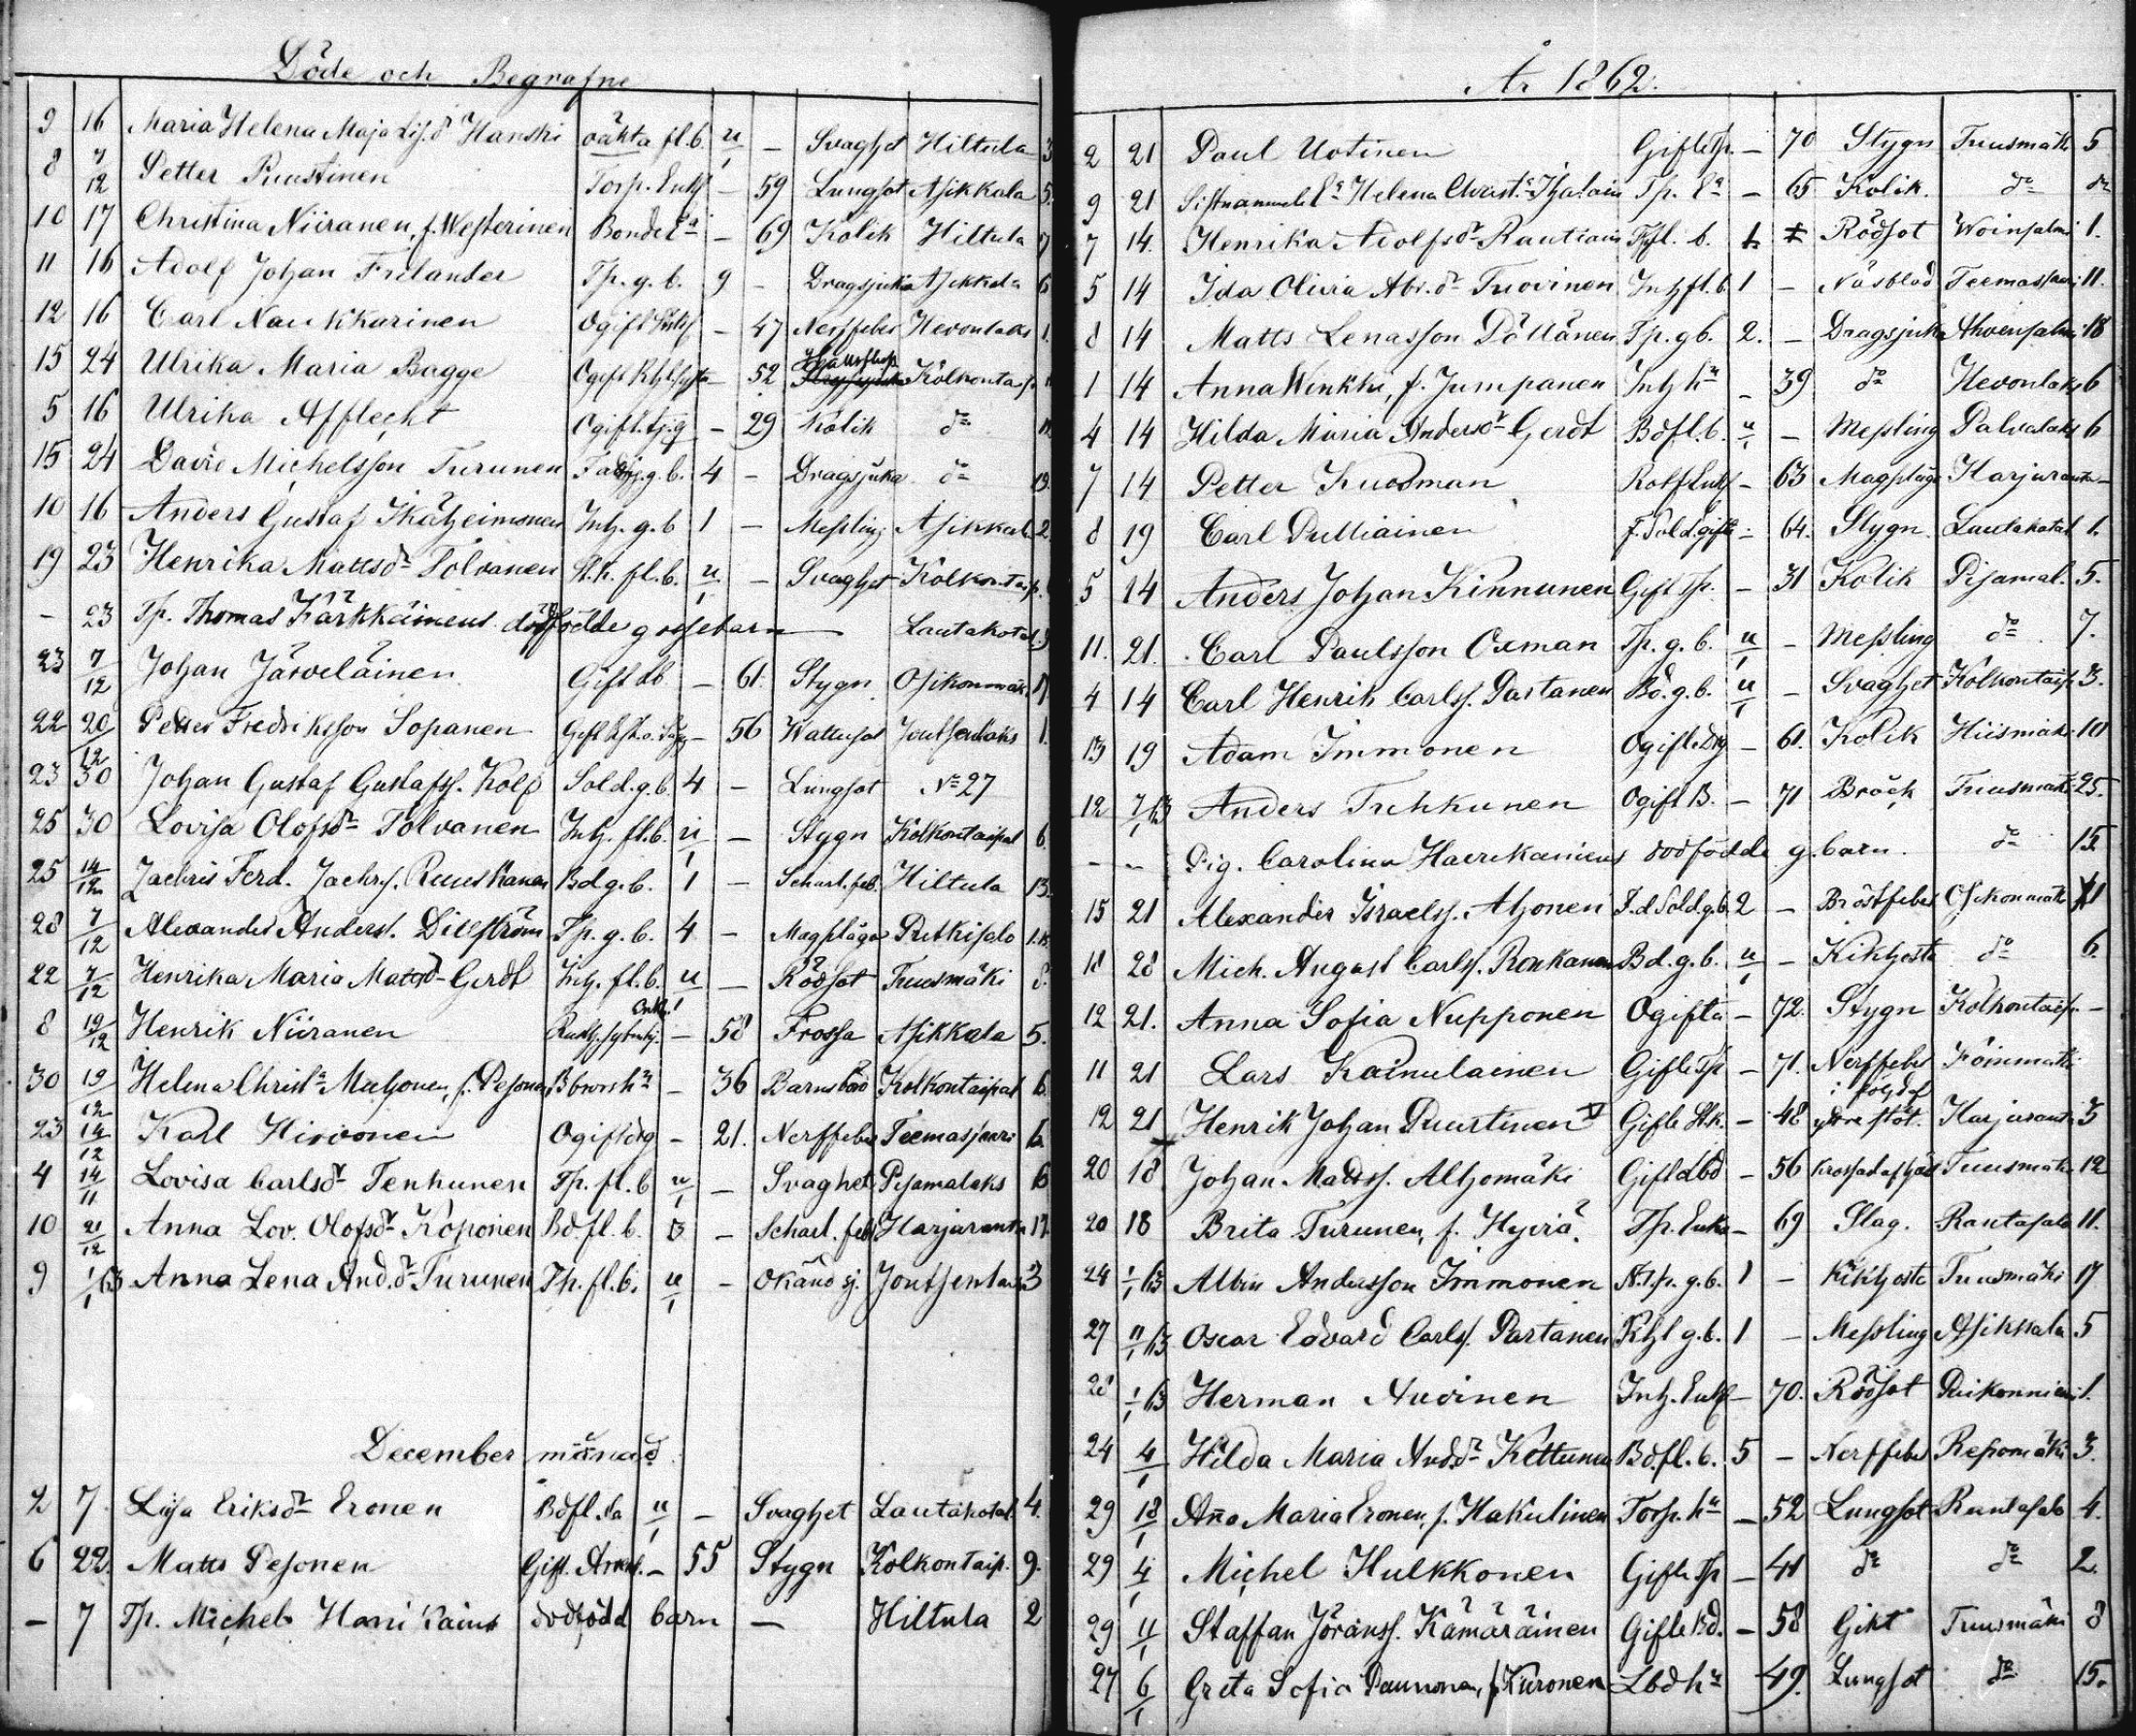 Döde och Begrafne
9 16 Maria Helena Maja Lis.dr Hanski oäkta fl.b. u/1 – Svaghet Hiltula 3
8 7/12 Petter Puustinen Torp. Enkl – 59 Lungsot Asikkala 5.
10 17 Christina Niiranen, f. Westerinen Bonde Ea – 69 Kolik Hiltula 7
11 16 Adolf Johan Frilander Tp. g. b. 9 – Dragsjuka Asikkala 6
12 16 Carl Naukkarinen Ogift – 47 Nerffeber Hevonlaks 1.
15 24 Ulrika Maria Bagge Ogift – 52 Kolkonta
5 16 Ulrika Afflecht Ogift. tj.q – 29 Kolik do
15 24 David Michelsson Turunen g. b. 4 – Dragsjuka do 19
10 16 Anders Gustaf Ikäheimonen Inh. g. b 1 – Messling Asikkala 2.
19 23 Henrika Mattsdr Tolvanen St.k. fl. b. u/1 – Svaghet Kolkontaip.
– 23 Tp. Thomas Kärkkäinens dödfödde gossebarn — Lautakotal. 9
23 7/12 Johan Järveläinen Gift db – 61. Stygn Osikonmäki 17
22 20/12 Petter Fredriksson Sopanen Gift – 56 Wattusot Joutsenlaks 1.
23 30 Johan Gustaf Gustafss. Kolp Sold. g. b. 4 – Lungsot No 27
25 30 Lovisa Olofsdr Tolvanen Inh. fl. b. u/1 – Stygn Kolkontaipal 6.
25 14/12 Zachris Ferd. Zachrs. Ruuskanen Bd g. b. 1 – Scharl. feb. Hiltula 13.
28 7/12 Alexander Anderss. Dillström Tp. g. b. 4 – Magplåga Pitkisalo
22 7/12 Henrika Maria Mattsdr Gerdt Inh. fl. b. u/1 – Rödsot Tuusmäki 8.
8 19/12 Henrik Niiranen – 58 Frossa Asikkala 5.
30 19/12 Helena Christa Muhonen, f. Pesonen – 36 Barnsbörd Kolkontaipal 6
23 14/12 Karl Hirvonen Ogift drg – 21. Nerffeber Teemasjaari 6.
4 14/11 Lovisa Carlsdr Tenhunen Tp. fl. b u/1 – Svaghet Pisamalaks 6
10 21/12 Anna Lov. Olofsdr Koponen Bd. fl. b. 3 – Scharl. feb. Harjuranta 17.
9 1/1 63 Anna Lena And.dr Turunen Tp. fl. b. u/1 – Okänd sj. Joutsenlaks 3
December månad
2 7. Lisa Eriksdr Eronen Bdfl. ba u/1 – Svaghet Lautakotal. 4.
6 22. Matts Pesonen Gift. – 55 Stygn Kolkontaip. 9.
– 7 Tp. Michels Hanikains dödfödd barn — Hiltula 2
År 1862.
2 21 Paul Uotinen Gifte Tp. – 70 Stygn Tuusmäki 5
9 21 Sistnämnde Ea Helena Christ.a Tp. Ea – 65 Kolik. do do
7 14. Henrika Adolfsdr Rautiain fl. b. Rödsot Woinsalmi 1.
5 14 Ida Olivia Abr.dr Tuovinen Inh fl. b 1 – Näsblod Teemasjaari 11.
8 14 Matts Lenasson Pöllänen Tp. g b. 2. – Dragsjuka Ahvensalmi 18
1 14 Anna Winkki, f. Jumpanen Inh hu – 39 do Hevonlaks 6
4 14 Hilda Maria Andersdr Gerdt Bdfl. b. u/1 – Messling Palvalaks 6
7 14 Petter Kuosman Enkl – 63 Magplåga Harjuranta –
8 19 Carl Pulliainen f. Sold. gift – 64. Stygn. Lautakotal 1.
5 14 Anders Johan Kinnunen Gift Tp. – 31 Kolik Pisamal. 5.
11. 21. Carl Paulsson Oxman Tp. g. b. u/1 – Messling do 7.
4 14 Carl Henrik Carlss. Partanen Bd. g. b. u/1 – Svaghet Kolkontaip 3.
13 19 Adam Immonen Ogift. Drg – 61. Kolik Hiismäki 10
12 7/1 63 Anders Tuhkunen Ogift B. – 71 Bråck Tuusmäki 25.
– – Pig. Carolina Haverikaniens dödfödde g. barn. do 15.
15 21 Alexander Israelss. Ahonen F.d Sold. g. b. 2 – Bröstfeber Osikonmäki 11
18 28 Mich. August Carlss. Ronkanen Bd. g. b. u/1 – Kikhosta do 6.
12 21. Anna Sofia Nupponen Ogifta – 72. Stygn Kolkontaip. –
11 21 Lars Kainulainen Gifte Tp – 71. Nerffeber
12 21 Henrik Johan Puustinen Gifte St.k. – 48 i följd af yttre stöt. Harjuranta 3
20 18 Johan Matss. Alhomäki Gift dbd – 56 Tuusmäki 12
20 18 Brita Turunen, f. Hyviä. Tp. Enka – 69 Slag. Rantasalo 11.
24 1/1 63 Albin Andersson Immonen g. b. 1 – Kikhosta Tuusmäki 17
27 11/1 63 Oscar Edvard Carlss. Partanen g. b. 1 – Messling Asikkala 5
28 1/1 63 Herman Auvinen Inh. Enkl – 70. Rödsot 1.
24 4/1 Hilda Maria And.dr Kettunen Bd.fl. b. 5 – Nerffeber Repomäki 3.
29 18/1 Anna Maria Eronen, f. Hakulinen Torp. hu – 52 Lungsot Rantasalo 4.
29 4/1 Michel Hulkkonen Gifte Tp – 41 do do 2.
29 11/1 Staffan Jöranss. Kämäräinen Gifte Bd. – 58 Gikt Tuusmäki 8
27 6/1 Greta Sofia Paunonen, f. Kuronen Lbd hu – 49. Lungsot do 15.